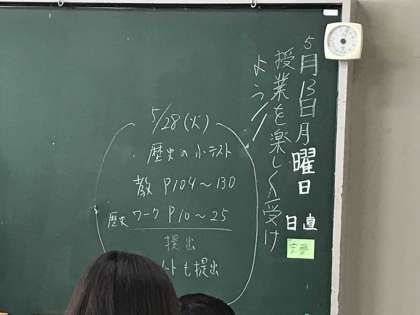 5月13日月曜日
授業を楽しく受け
よう!!
日直
5/28(火)
・歴史の小テスト
教 P104〜130
歴史 ワーク P10〜25
提出
ートも提出